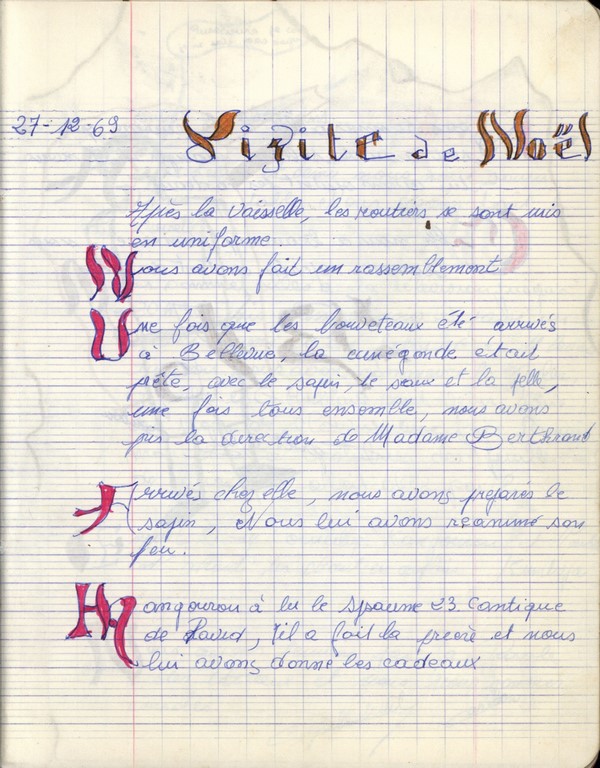 27-12-69
Visite de Noël
Après la vaisselle, les routiers se sont mis
en uniforme.
Nous avons fait un rassemblement
Une fois que les louveteaux été arrivés
à Bellevue, la cunégonde était
prête, avec le sapin, le seaux et la pelle,
une fois tous ensemble, nous avons
pis la direction de Madame Berthraud
Arrivés chez elle, nous avons preparés le
sapin, Nous lui avons reanimé son
feu.
Kangourou à lu le spaume 23. Cantique
de David, il a fait la prière et nous
lui avons donné les cadeaux